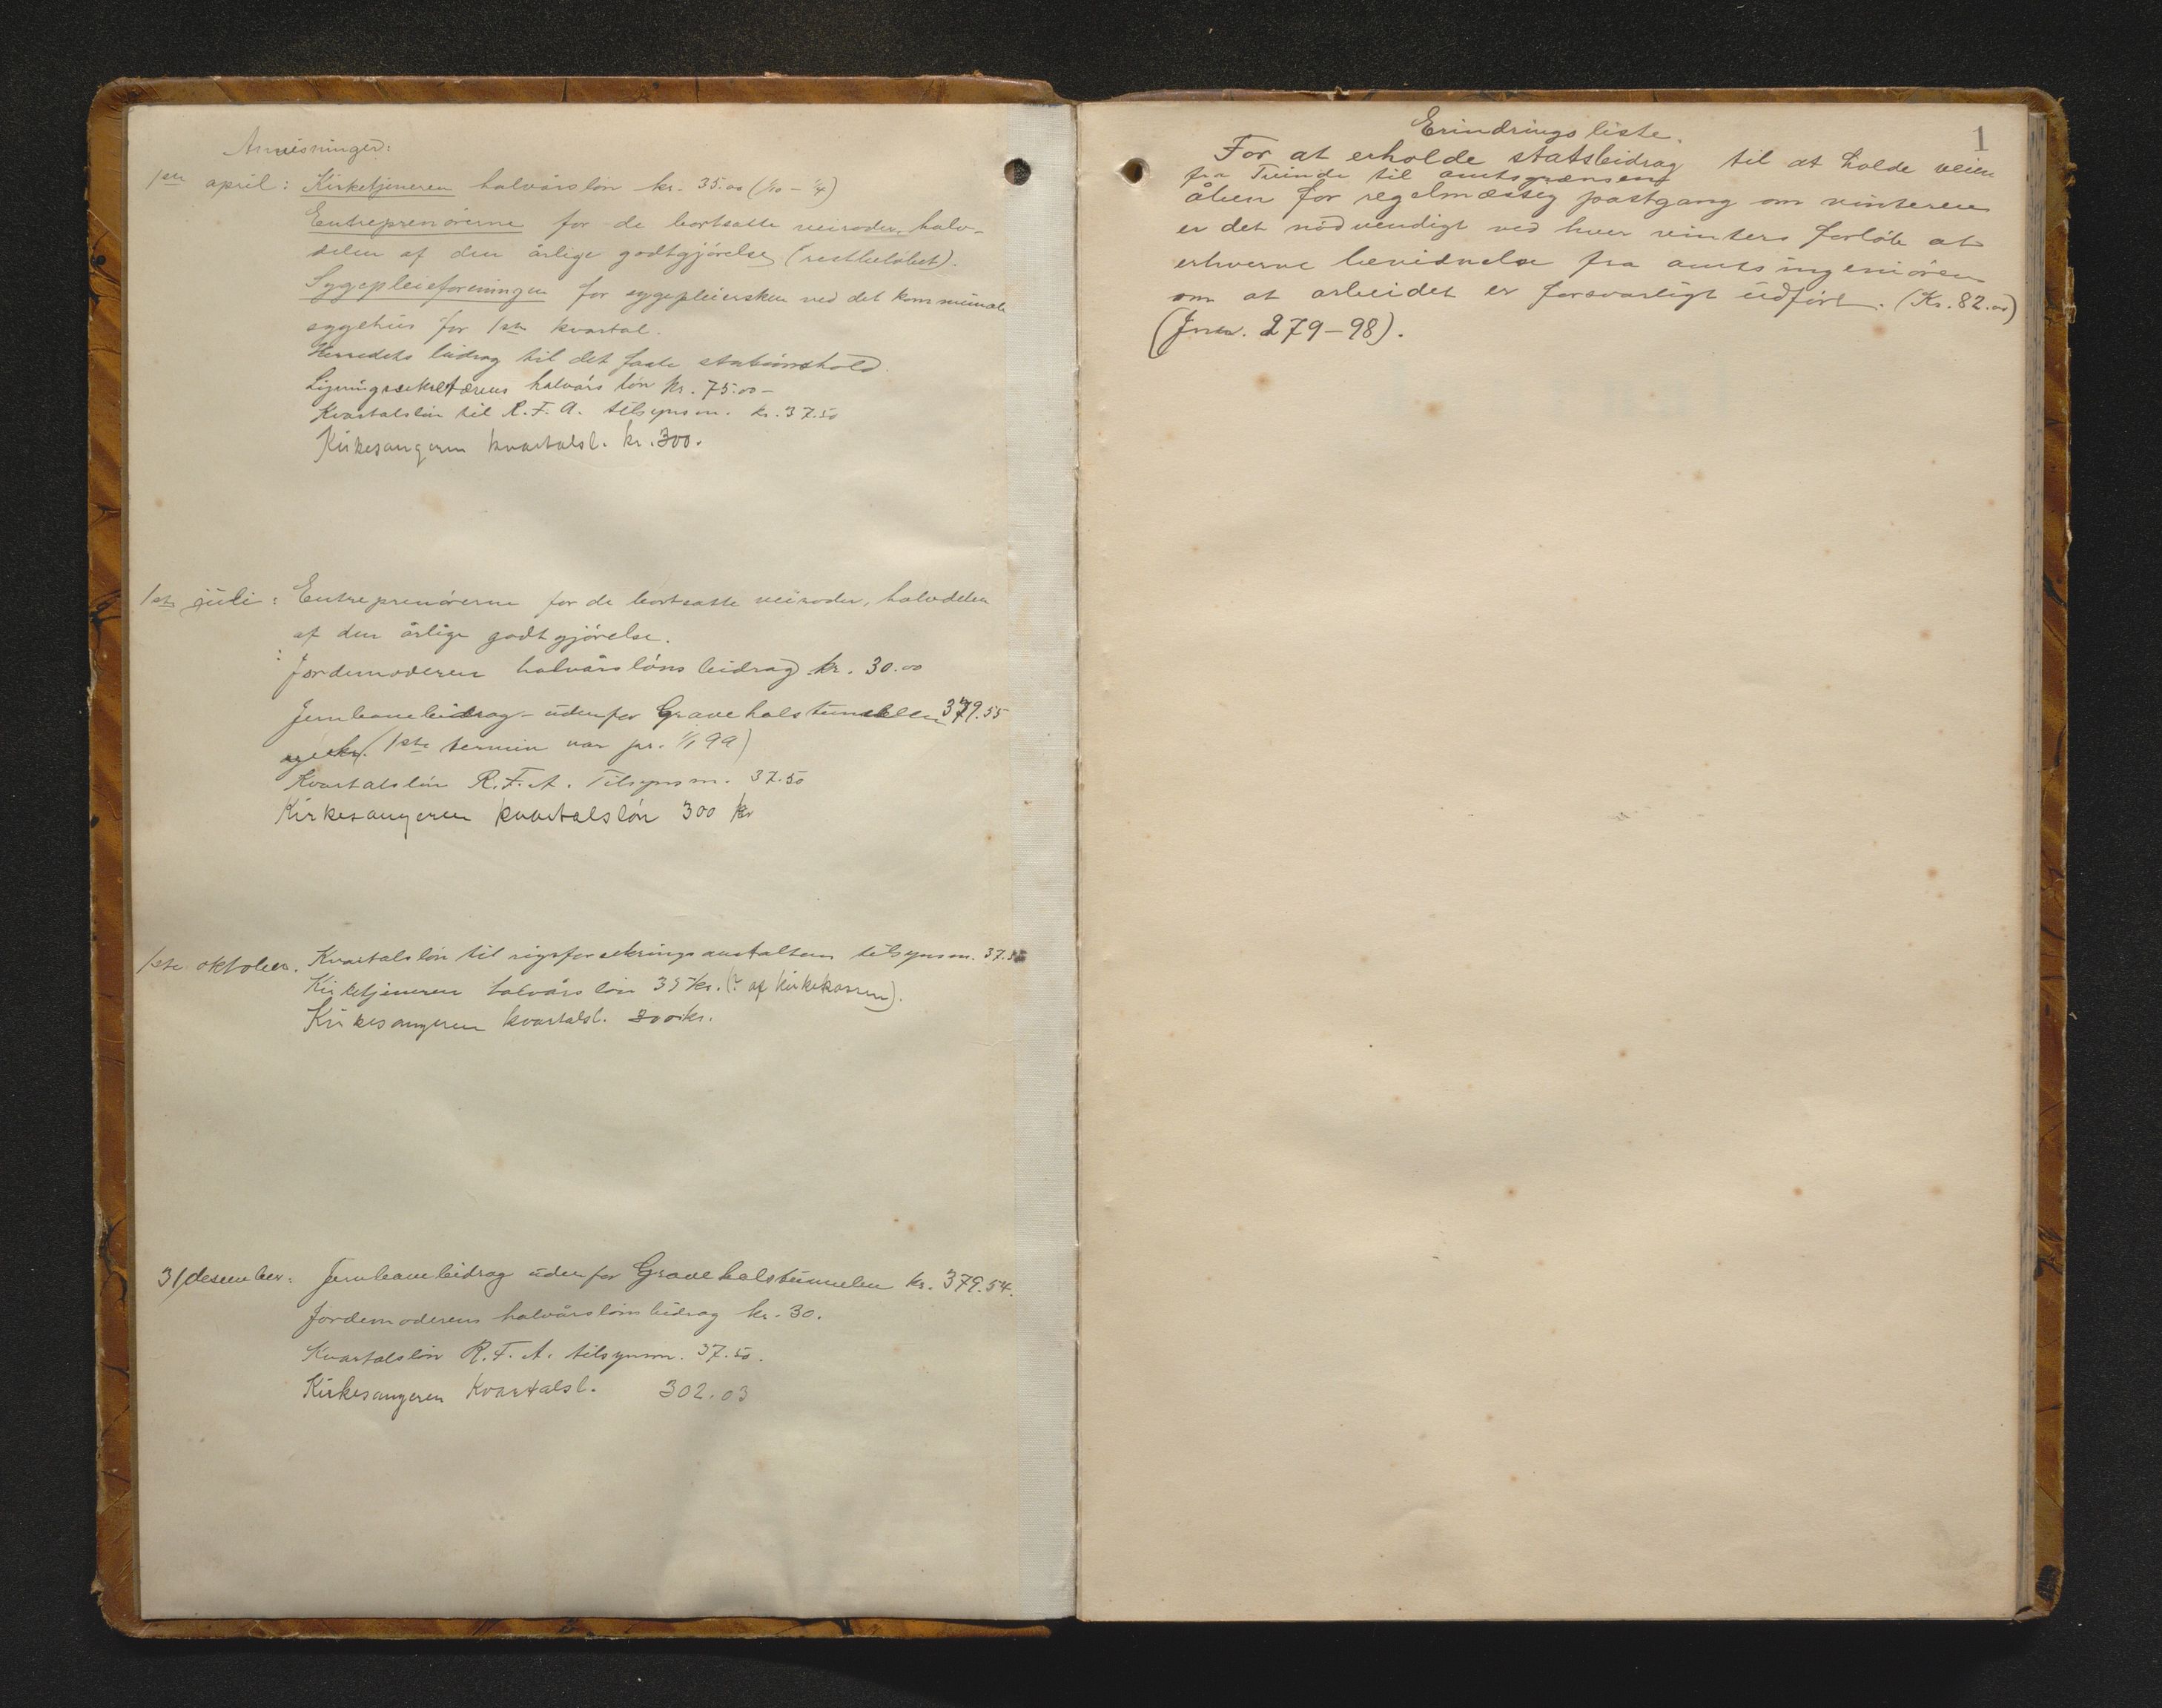 Anvisninger:
1ste april: Kirketjeneren halvårslön kr. 35.00 (1/10 – 1/4)
Entreprenörerne for de bortsatte veiroder, halv-
delen af den årlige godtgjörelse (restbelöbet).
Sygepleieforeningen for sygepleiersken ved det kommunale
sygehus for 1ste kvartal.
Herredets bidrag til det faste stationshold.
Ligningssekretærens halvårs lön kr. 75.00 –
Kvartalslön til R. F. A. tilsynsm. kr. 37.50
Kirkesangeren kvartalsl. kr. 300.
1ste juli: Entreprenörerne for de bortsatte veiroder, halvdelen
af den årlige godtgjörelse.
: Jordemoderen halvårslöns bidrag kr. 30.00
Jernbanebidrag – udenfor Gravehalstunnelen 379.55
(1ste termin var pr. 1/1 99)
Kvartalslön R. F. A. Tilsynsm. 37.50
Kirkesangeren kvartalslön 300 kr
1ste oktober. Kvartalslön til rigsforsekringsanstaltens tilsynsm. 37.50
Kirketjeneren halvårs lön 35 kr. (? af kirkekassen).
Kirkesangeren kvartalsl. 300 kr.
31/desember: Jernbanebidrag udenfor Gravehalstunnelen kr. 379.54.
Jordemoderens halvårslöns bidrag kr. 30.
Kvartalslön R. F. A. tilsynsm. 37.50.
Kirkesangeren Kvartalsl. 302.03
1
Erindringsliste.
For at erholde statsbidrag til at holde veien
fra Tvinde til amtsgrænsen
åben for regelmæssig postgang om vinteren
er det nödvendigt ved hver vinters forlöb at
erhverve bevidnelse fra amtsingeniören
om at arbeidet er forsvarligt udfört. (Kr. 82.00)
(Jnr. 279–98).